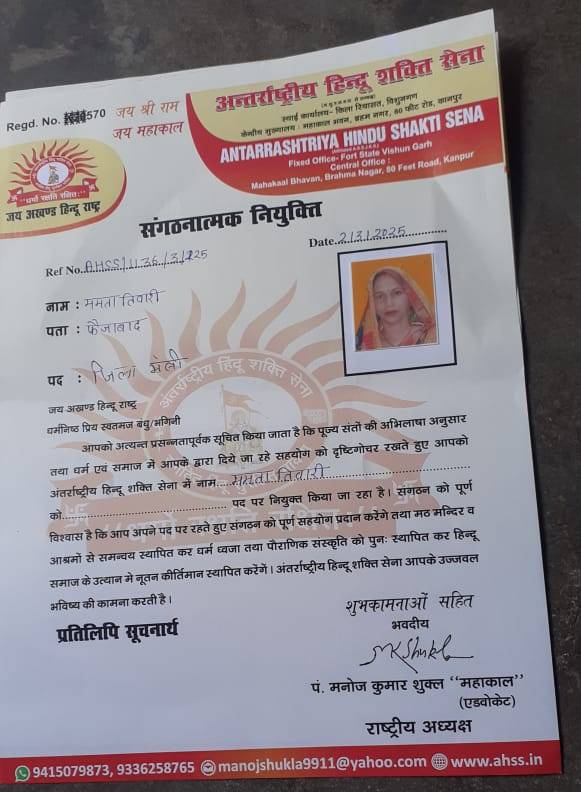 Regd. No. 570
जय श्री राम
जय महाकाल
अन्तर्राष्ट्रीय हिन्दू शक्ति सेना
स्थाई कार्यालय- किला रियासत, विशुनगण
केन्द्रीय मुख्यालय : महाकाल भवन, ब्रहम नगर, 80 फीट रोड, कानपुर
ANTARRASHTRIYA HINDU SHAKTI SENA
Fixed Office- Fort State Vishun Garh
Central Office :
Mahakaal Bhavan, Brahma Nagar, 80 Feet Road, Kanpur
"धर्मो रक्षति रक्षितः"
जय अखण्ड हिन्दू राष्ट्र
संगठनात्मक नियुक्ति
Date 2/3/2025
Ref No. AHSS/1136/3/225
नाम : ममता तिवारी
पता : फैजाबाद
पद : जिला मंत्री
अंतर्राष्ट्रीय हिंदू शक्ति सेना
जय अखण्ड हिन्दू राष्ट्र
धर्मनिष्ठ प्रिय स्वतमज बंधु/भगिनी
आपको अत्यन्त प्रसन्नतापूर्वक सूचित किया जाता है कि पूज्य संतों की अभिलाषा अनुसार
तथा धर्म एवं समाज मे आपके द्वारा दिये जा रहे सहयोग को दृष्टिगोचर रखते हुए आपको
अंतर्राष्ट्रीय हिन्दू शक्ति सेना में नाम ममता तिवारी
को पद पर नियुक्त किया जा रहा है। संगठन को पूर्ण
विश्वास है कि आप अपने पद पर रहते हुए संगठन को पूर्ण सहयोग प्रदान करेंगे तथा मठ मन्दिर व
आश्रमों से समन्वय स्थापित कर धर्म ध्वजा तथा पौराणिक संस्कृति को पुनः स्थापित कर हिन्दू
समाज के उत्थान मे नूतन कीर्तिमान स्थापित करेंगें। अंतर्राष्ट्रीय हिन्दू शक्ति सेना आपके उज्जवल
भविष्य की कामना करती है।
शुभकामनाओं सहित
भवदीय
प्रतिलिपि सूचनार्थ
MKShukla
पं. मनोज कुमार शुक्ल "महाकाल"
(एडवोकेट)
राष्ट्रीय अध्यक्ष
9415079873, 9336258765 manojshukla9911@yahoo.com www.ahss.in